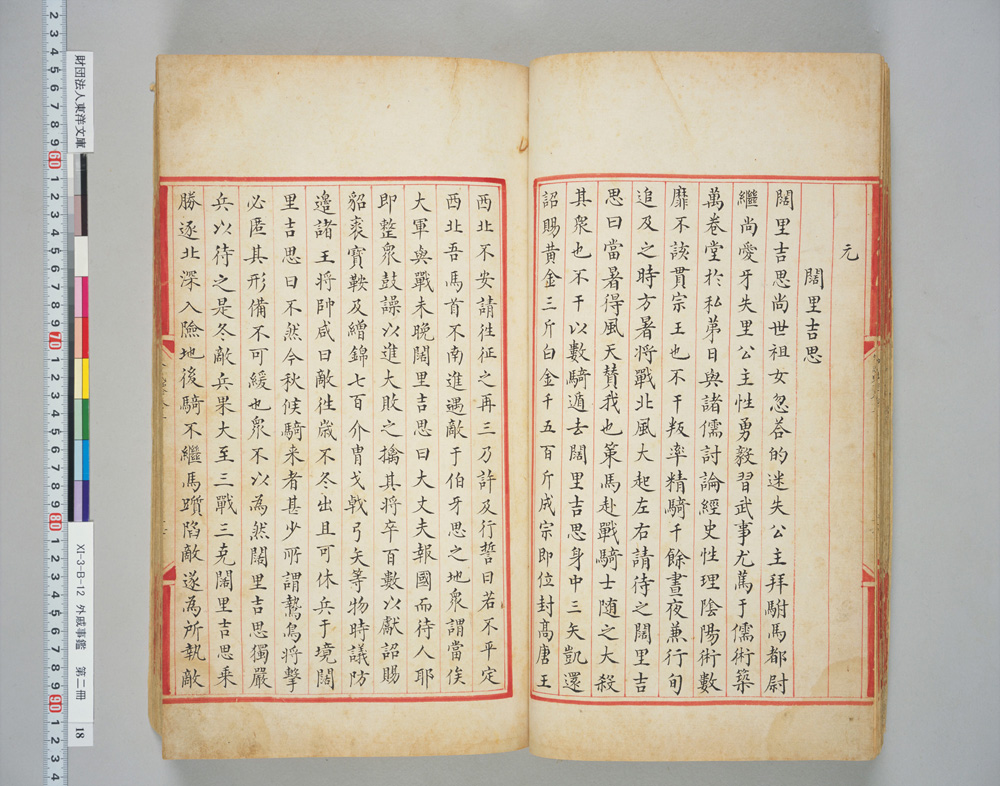 元
闊里吉思
闊里吉思尚世祖女忽荅的迷失公主拜駙馬都尉
繼尚愛牙失里公主性勇毅習武事尤篤于儒術築
萬卷堂於私苐日與諸儒討論經史性理陰陽術數
靡不該貫宗王也不干叛率精騎千餘晝夜兼行旬
追及之時方暑將戰北風大起左右請待之闊里吉
思曰當暑得風天賛我也策馬赴戰騎士随之大殺
其衆也不干以數騎遁去闊里吉思身中三矢凱還
詔賜黃金三斤白金千五百斤成宗即位封高唐王
西北不安請徃征之再三乃許及行誓曰若不平定
西北吾馬首不南進遇敵于伯牙思之地衆謂當俟
大軍與戰未晚闊里吉思曰大丈夫報國而待人耶
即整衆鼓譟以進大敗之擒其將卒百數以獻詔賜
貂裘寶鞍及繒錦七百介冑戈戟弓矢等物時議防
邊諸王將帥咸曰敵徃歲不冬出且可休兵于境闊
里吉思曰不然今秋候騎来者甚少所謂鷙鳥將擊
必匿其形備不可緩也衆不以為然闊里吉思獨嚴
兵以待之是冬敵兵果大至三戰三克闊里吉思乗
勝逐北深入險地後騎不繼馬躓陷敵遂為所執敵
財団法人東洋文庫
XI-3-B-12 外戚事鑑 第二冊
18